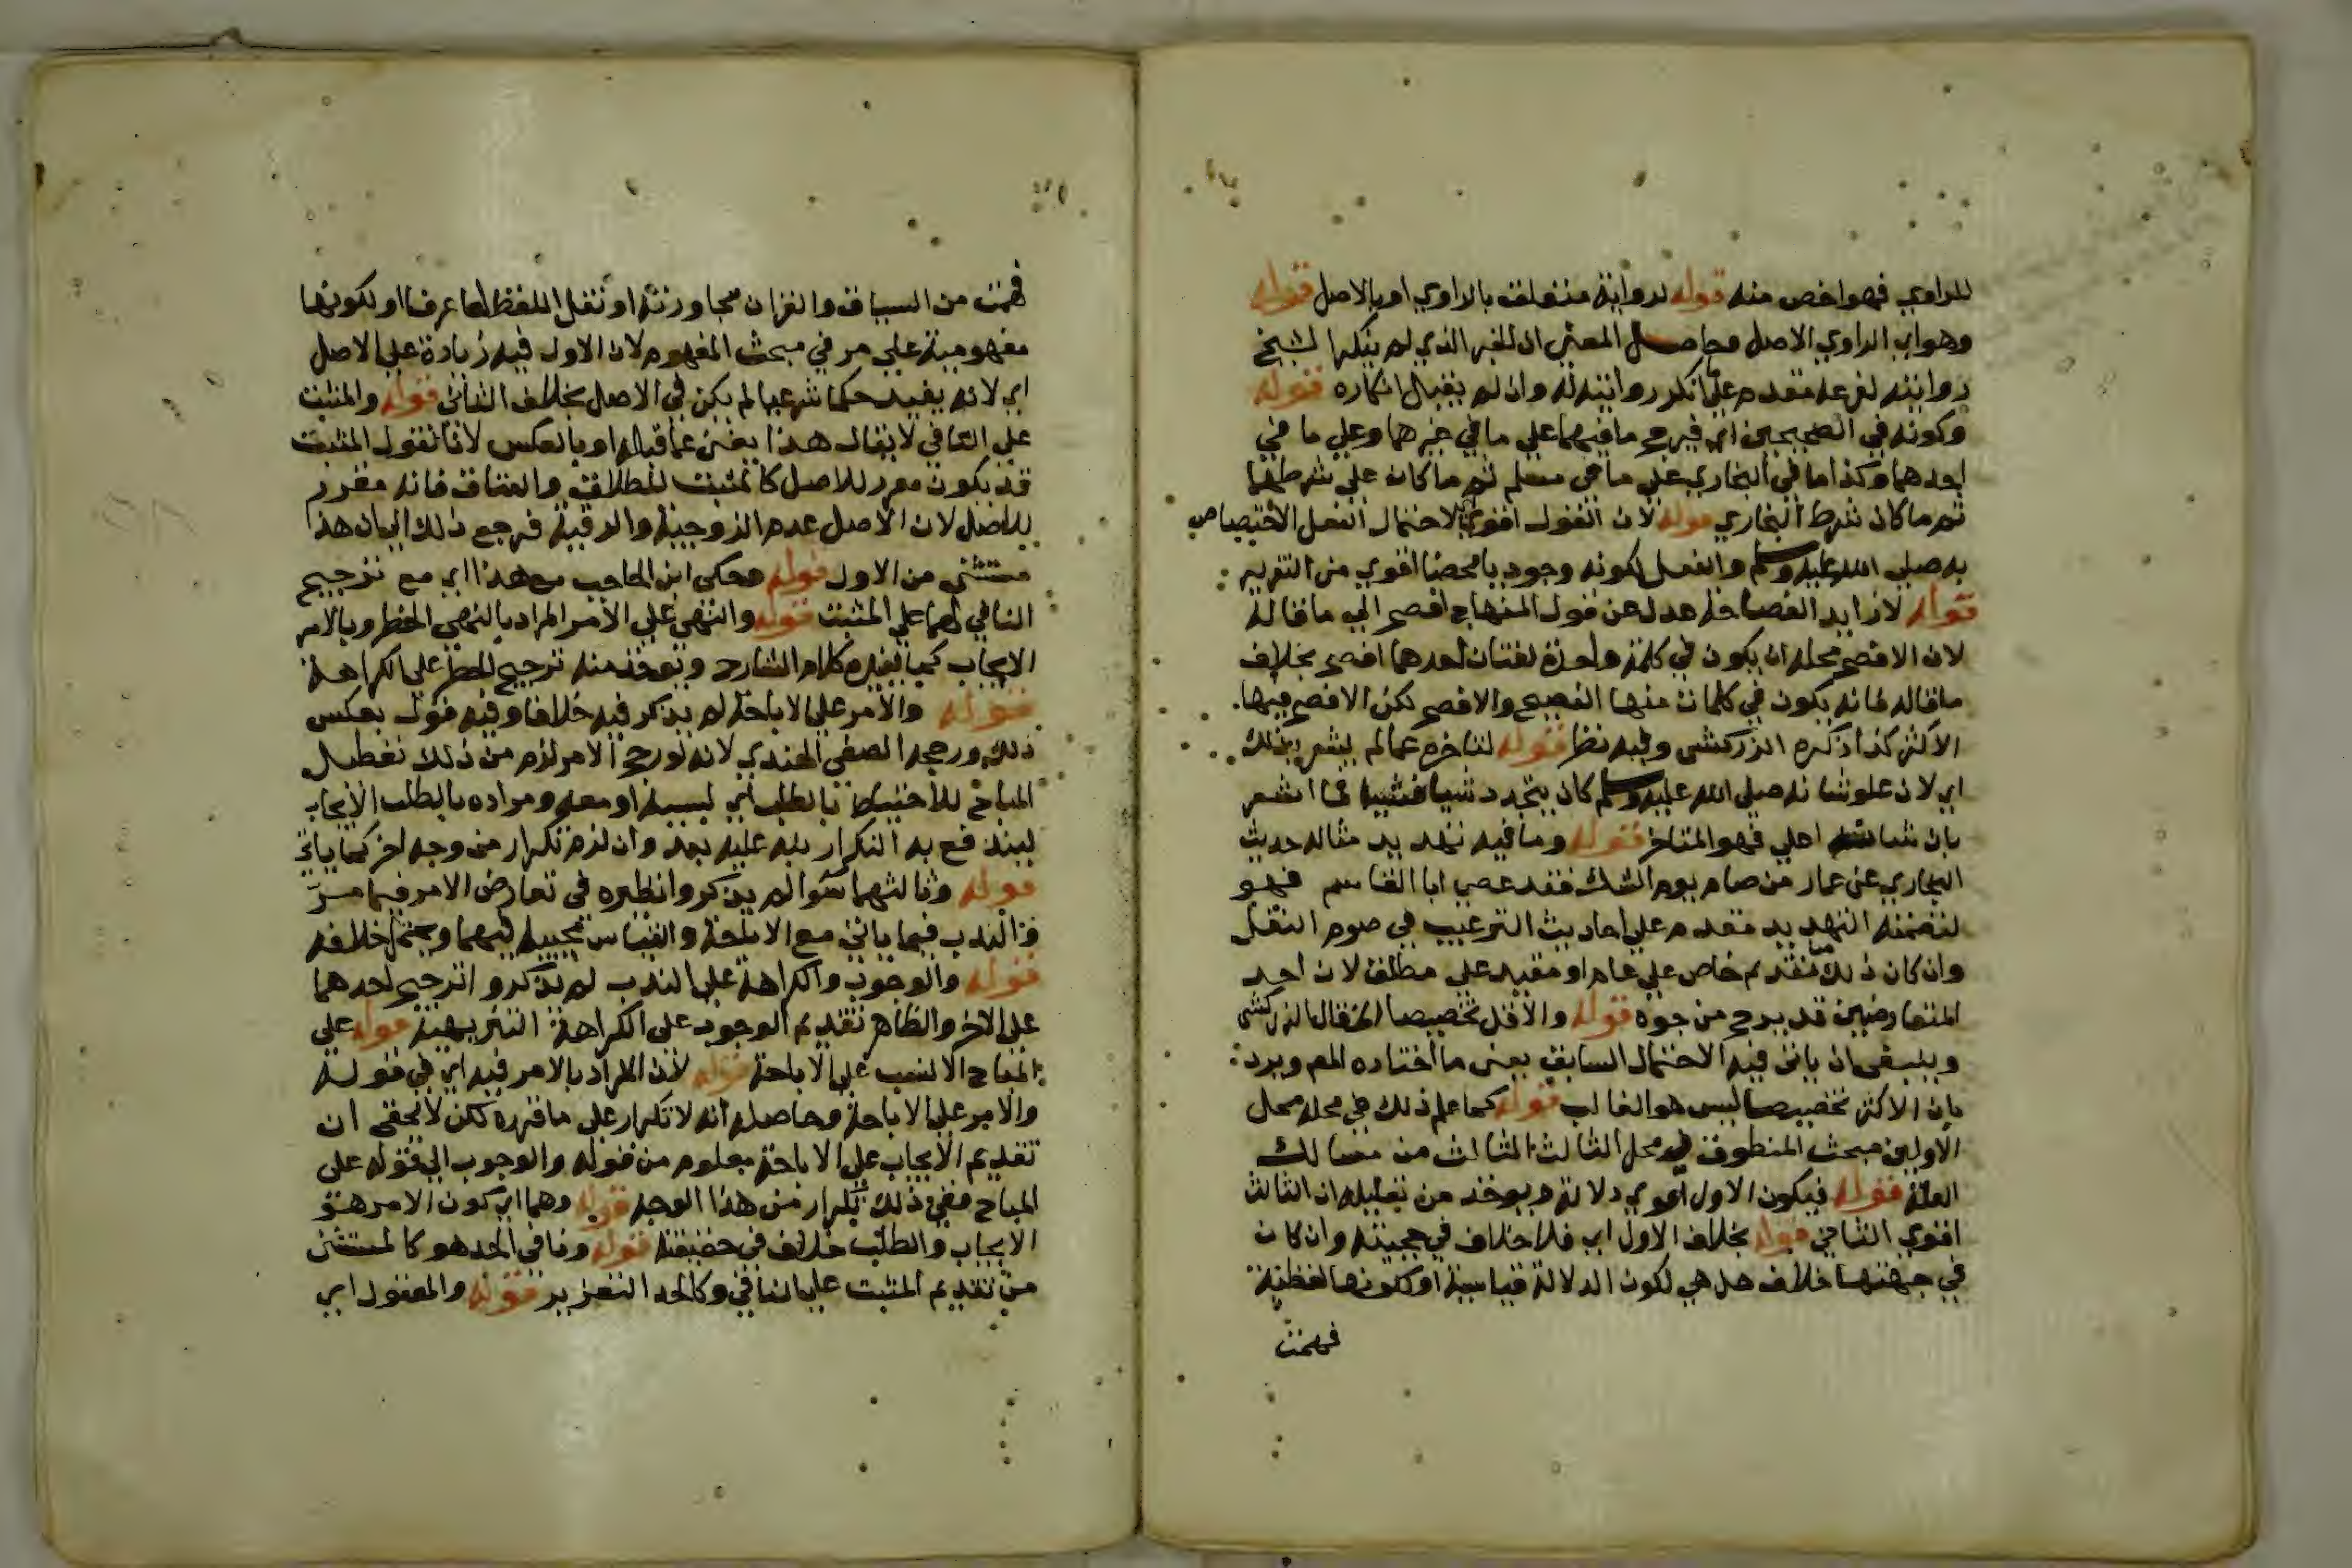 للراوي فهو اخص منه قوله لرواية متعلقة بالراوي او بالاصل قوله
وهو اي الراوي الاصل وحاصل المعنى ان الخبر الذي لم ينكرا لشيخ
روايته لفرعه مقدم على ما انكر روايته له وان لم يقبل انكاره قوله
وكونه في الصحيحين اي فيرجح ما فيهما على ما في غيرهما وعلى ما في
احدهما وكذا ما في البخاري على ما في مسلم ثم ما كان على شرطهما
ثم ما كان شرط البخاري قوله لان القول اقوي لاحتمال الفعل الاختصاص
به صلى الله عليه وسلم والفعل لكونه وجوديا محضا اقوي من التقرير
قوله لا زايد الفصاحة عدل عن قول المنهاج افصح الي ما قاله
لان الافصح محله ان يكون في كلمة واحدة لغتان احدهما افصح بخلاف
ما قاله فانه يكون في كلمات منها الفصيح والافصح لكن الافصح فيها
الاكثر كذا ذكره الزركشي وفيه نظر قوله لتاخره عما لم يشعر بذلك
اي لان علو شانه صلى الله عليه وسلم كان يتجدد شيا فشيا فما اشعر
بان شانه اعلي فهو المتاخر قوله وما فيه تهديد مثاله حديث
البخاري عن عمار من صام يوم الشك فقد عصى ابا القاسم فهو
لتضمنه التهديد مقدم على احاديث الترغيب في صوم النفل
وان كان ذلك تقديم خاص على عام او مقيد على مطلق لان احد
المتعارضين قد يرجح من جوه قوله والاقل تخصيصا الخ قال الزركشي
وينبغي ان ياتي فيه الاحتمال السابق يعني ما اختاره المص ويرد
بان الاكثر تخصيصا ليس هو الغالب قوله كما علم ذلك في محله محل
الاولين مبحث المنطوق ومحل الثالث الثالث من مسالك
العلة قوله فيكون الاول اقوي دلالة ويوخذ من تعليله ان الثالث
اقوي الثاني قوله بخلاف الاول اي فلا خلاف في حجيته وان كان
في جهتها خلاف هل هي لكون الدلالة قياسية او لكونها لفظية
فهمت
فهمت من السياق والقران مجاورته او نقل اللفظ لها عرفا او لكونها
مفهومية على مر في مبحث المفهوم لان الاول فيه زيادة على الاصل
اي لانه يفيد حكما شرعيا لم يكن في الاصل بخلاف الثاني قوله والمثبت
على النافي لا يقال هذا يغني عما قبله او بالعكس لانا نقول المثبت
قد يكون مقرر للاصل كالمثبت للطلاق والعتاق فانه مقرر
للاصل لان الاصل عدم الزوجية والرقية فرجع ذلك الي ان هذا
مستثنى من الاول قوله وحكى ابن الحاجب مع هذا اي مع ترجيح
النافي لهما على المثبت قوله والنهي على الامر المراد بالنهي الحظر وبالامر
الايجاب كما يفيده كلام الشارح ويوخذ منه ترجيح الحظر على الكراهة
قوله والامر على الاباحة لم يذكر فيه خلافا وفيه قول بعكس
ذلك ورجحه الصفي الهندي لانه لو رجح الامر لزم من ذلك تعطيل
المباح للاحتياط بالطلب اي لسببه او معه ومراده بالطلب الايجاب
ليندفع به التكرار عليه بعد وان لزم تكرار من وجه اخر كما ياتي
قوله وثالثهما سوا لم يذكروا نظيره في تعارض الامر فيما مر
والندب فيما ياتي مع الاباحة والقياس مجيه فيهما ويحتمل خلافه
قوله والوجوب والكراهة على الندب لم يذكروا ترجيح احدهما
على الاخر والظاهر تقديم الوجوب على الكراهة التنزيهية قوله على
المباح الانسب على الاباحة قوله لان المراد بالامر فيه اي في قوله
والامر على الاباحة وحاصله انه لا تكرار على ما قرره لكن لا يخفى ان
تقديم الايجاب على الاباحة معلوم من قوله والوجوب الي قوله على
المباح ففي ذلك تكرار من هذا الوجه قوله وهما اي كون الامر هو
الايجاب والطلب خلاف في حقيقته قوله ونافي الحد هو كالمستثنى
من تقديم المثبت على النافي وكالحد التعزير قوله والمعقول اي